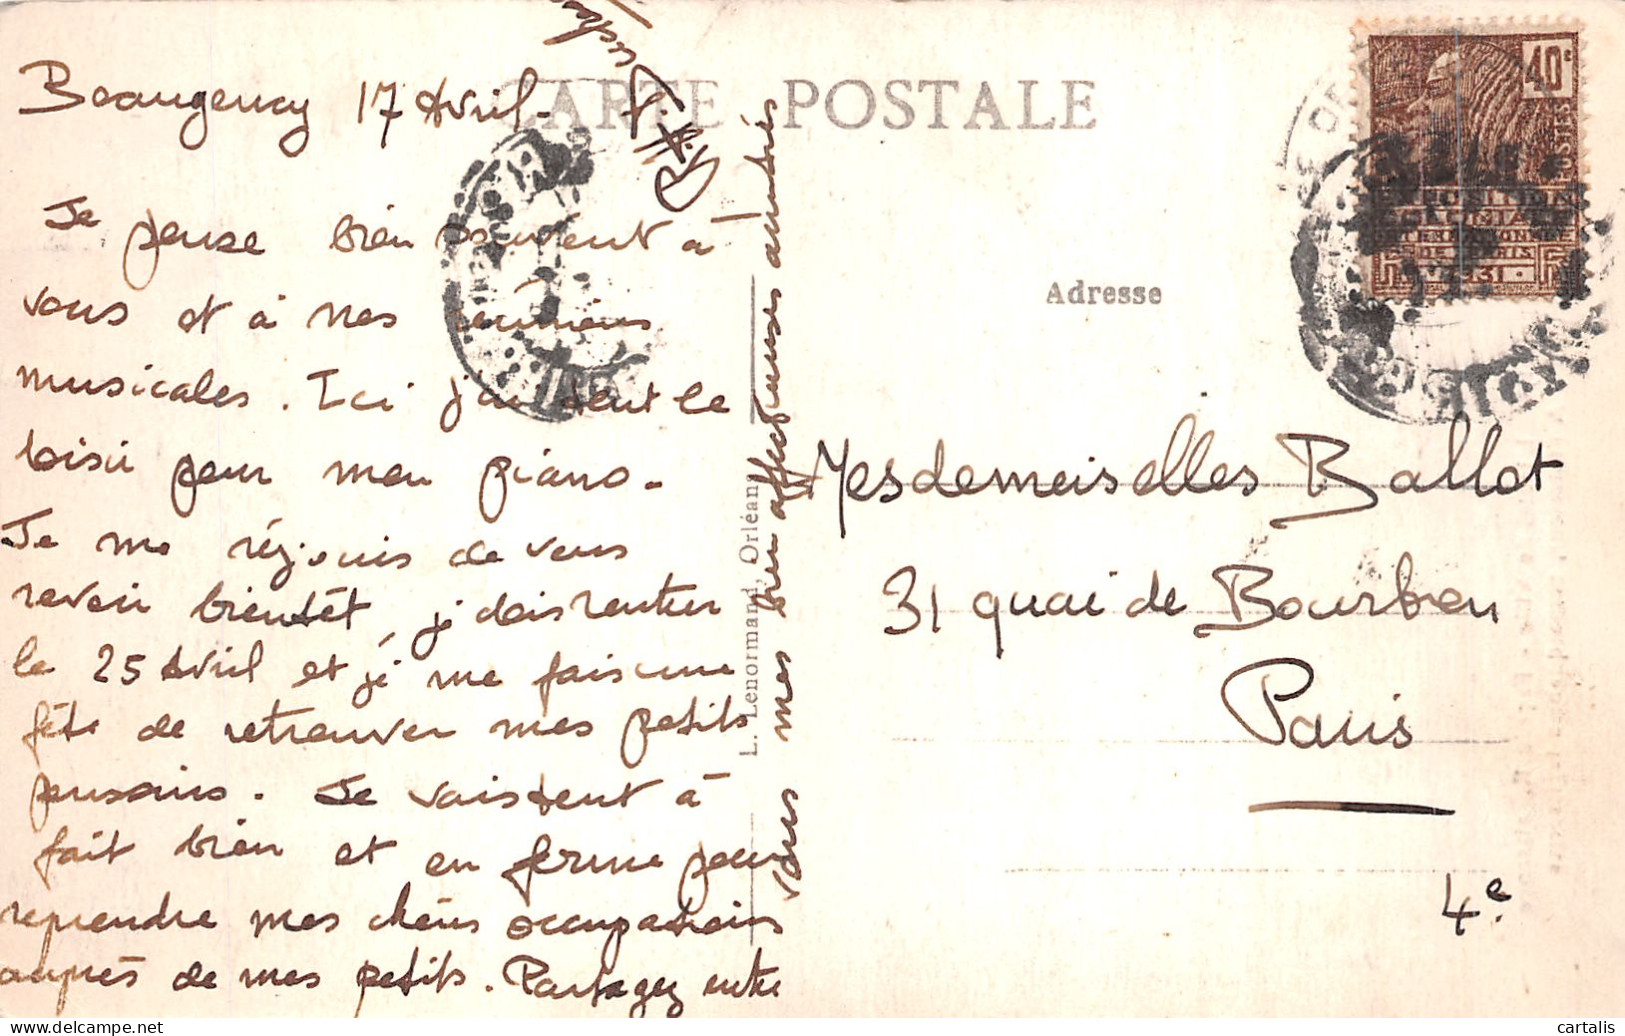 CARTE POSTALE
Beaugency 17 Avril -
Je pense bien souvent à
vous et à nos réunions
musicales. Ici j'ai tout le
loisir pour mon piano -
Je me réjouis de vous
revoir bientôt, je dois rentrer
le 25 Avril et je me fais une
fête de retrouver mes petits
pensions. Je vais tout à
fait bien et en forme pour
reprendre mes chères occupations
auprès de mes petits. Partagez entre
vous mes bien affectueuses amitiés
L. Lenormand, Orléans
Adresse
40c
POSTES
EXPOSITION
COLONIALE
INTERNATIONALE
DE PARIS
1931
Mesdemoiselles Ballot
31 quai de Bourbon
Paris
4e
cartalis